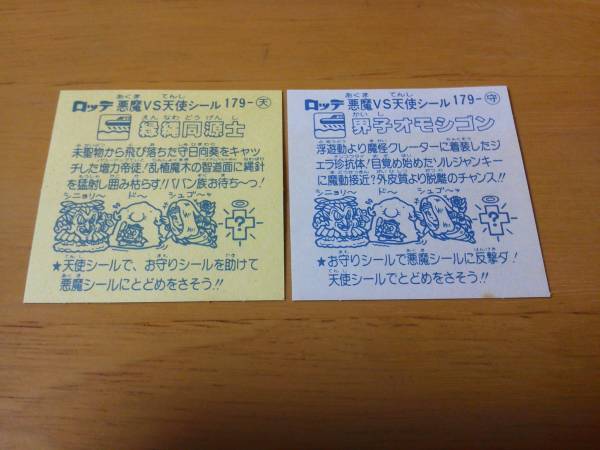 あくま てんし
ロッテ 悪魔VS天使シール 179-天
えんなわどうげんし
縁縄同源士
未聖物から飛び落ちた守日向葵をキャッ
チした増力帝徒!乱植魔木の智道面に縄針
を猛射し囲み枯らす!!ババン族お待ち〜っ!
シニョリ〜 ド〜 シュゴ〜ャ
?
★天使シールで、お守りシールを助けて
悪魔シールにとどめをさそう!!
あくま てんし
ロッテ 悪魔VS天使シール 179-守
かいし
界子オモシゴン
浮遊動より魔怪クレーターに着装したジ
ェラ珍抗体!自覚め始めたソルジャンキー
に魔動接近?外皮質より脱離のチャンス!!
シニョリ〜 ド〜 シュゴ〜ャ
?
★お守りシールで悪魔シールに反撃ダ!
天使シールでとどめをさそう!!